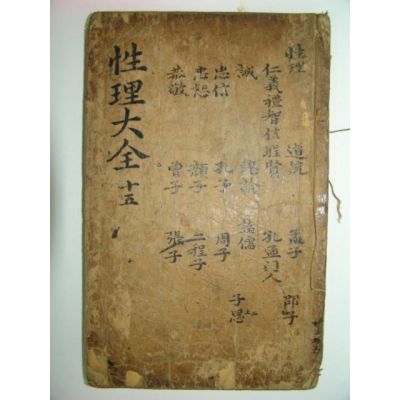 性理 道統 孟子 邵子
仁義禮智信 聖賢 孔孟門人
誠 總論 諸儒 子思
忠信 孔子 周子
忠恕 顔子 二程子
恭敬 曾子 張子
性理大全 十五